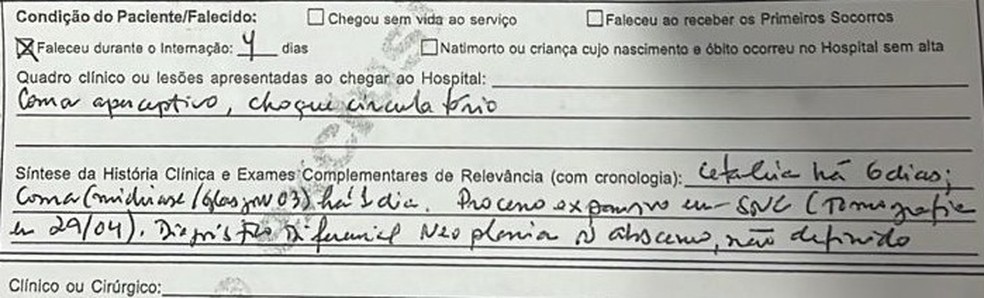 Condição do Paciente/Falecido: ☐ Chegou sem vida ao serviço ☐ Faleceu ao receber os Primeiros Socorros
☒ Faleceu durante o Internação: 4 dias ☐ Natimorto ou criança cujo nascimento e óbito ocorreu no Hospital sem alta
Quadro clínico ou lesões apresentadas ao chegar ao Hospital:
Coma aperceptivo, choque circulatório
Síntese da História Clínica e Exames Complementares de Relevância (com cronologia): cefaleia há 6 dias;
Coma (midríase/Glasgow 03) há 1 dia. Processo expansivo em SNC (Tomografia
em 29/04). Diagnóstico Diferencial Neoplasia abscesso, não definido
Clínico ou Cirúrgico: